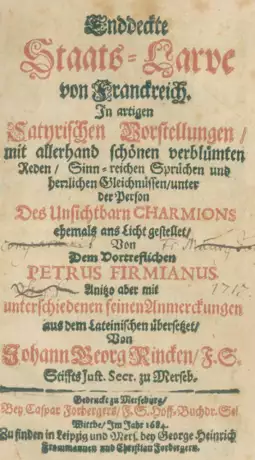 Enddeckte
Staats-Larve
von Franckreich.
In artigen
Satyrischen Vorstellungen/
mit allerhand schönen verblümten
Reden/ Sinn-reichen Sprüchen und
herrlichen Gleichnüssen/unter
der Person
Des Unsichtbarn CHARMIONS
ehemals ans Licht gestellet/
Von
Dem Vortreflichen
PETRUS FIRMIANUS.
Anitzo aber mit
1717.
unterschiedenen feinen Anmerckungen
aus dem Lateinischen übersetzet/
Von
Johann Georg Rincken/ F. S.
Stiffts Just. Secr. zu Merseb.
Gedruckt zu Merseburg/
Bey Caspar Forbergern/ F. S. Hoff-Buchdr. Sel.
Wittbe/ Im Jahr 1684.
Zu finden in Leipzig und Mers. bey George Heinrich
Frommannen und Christian Forbergern.